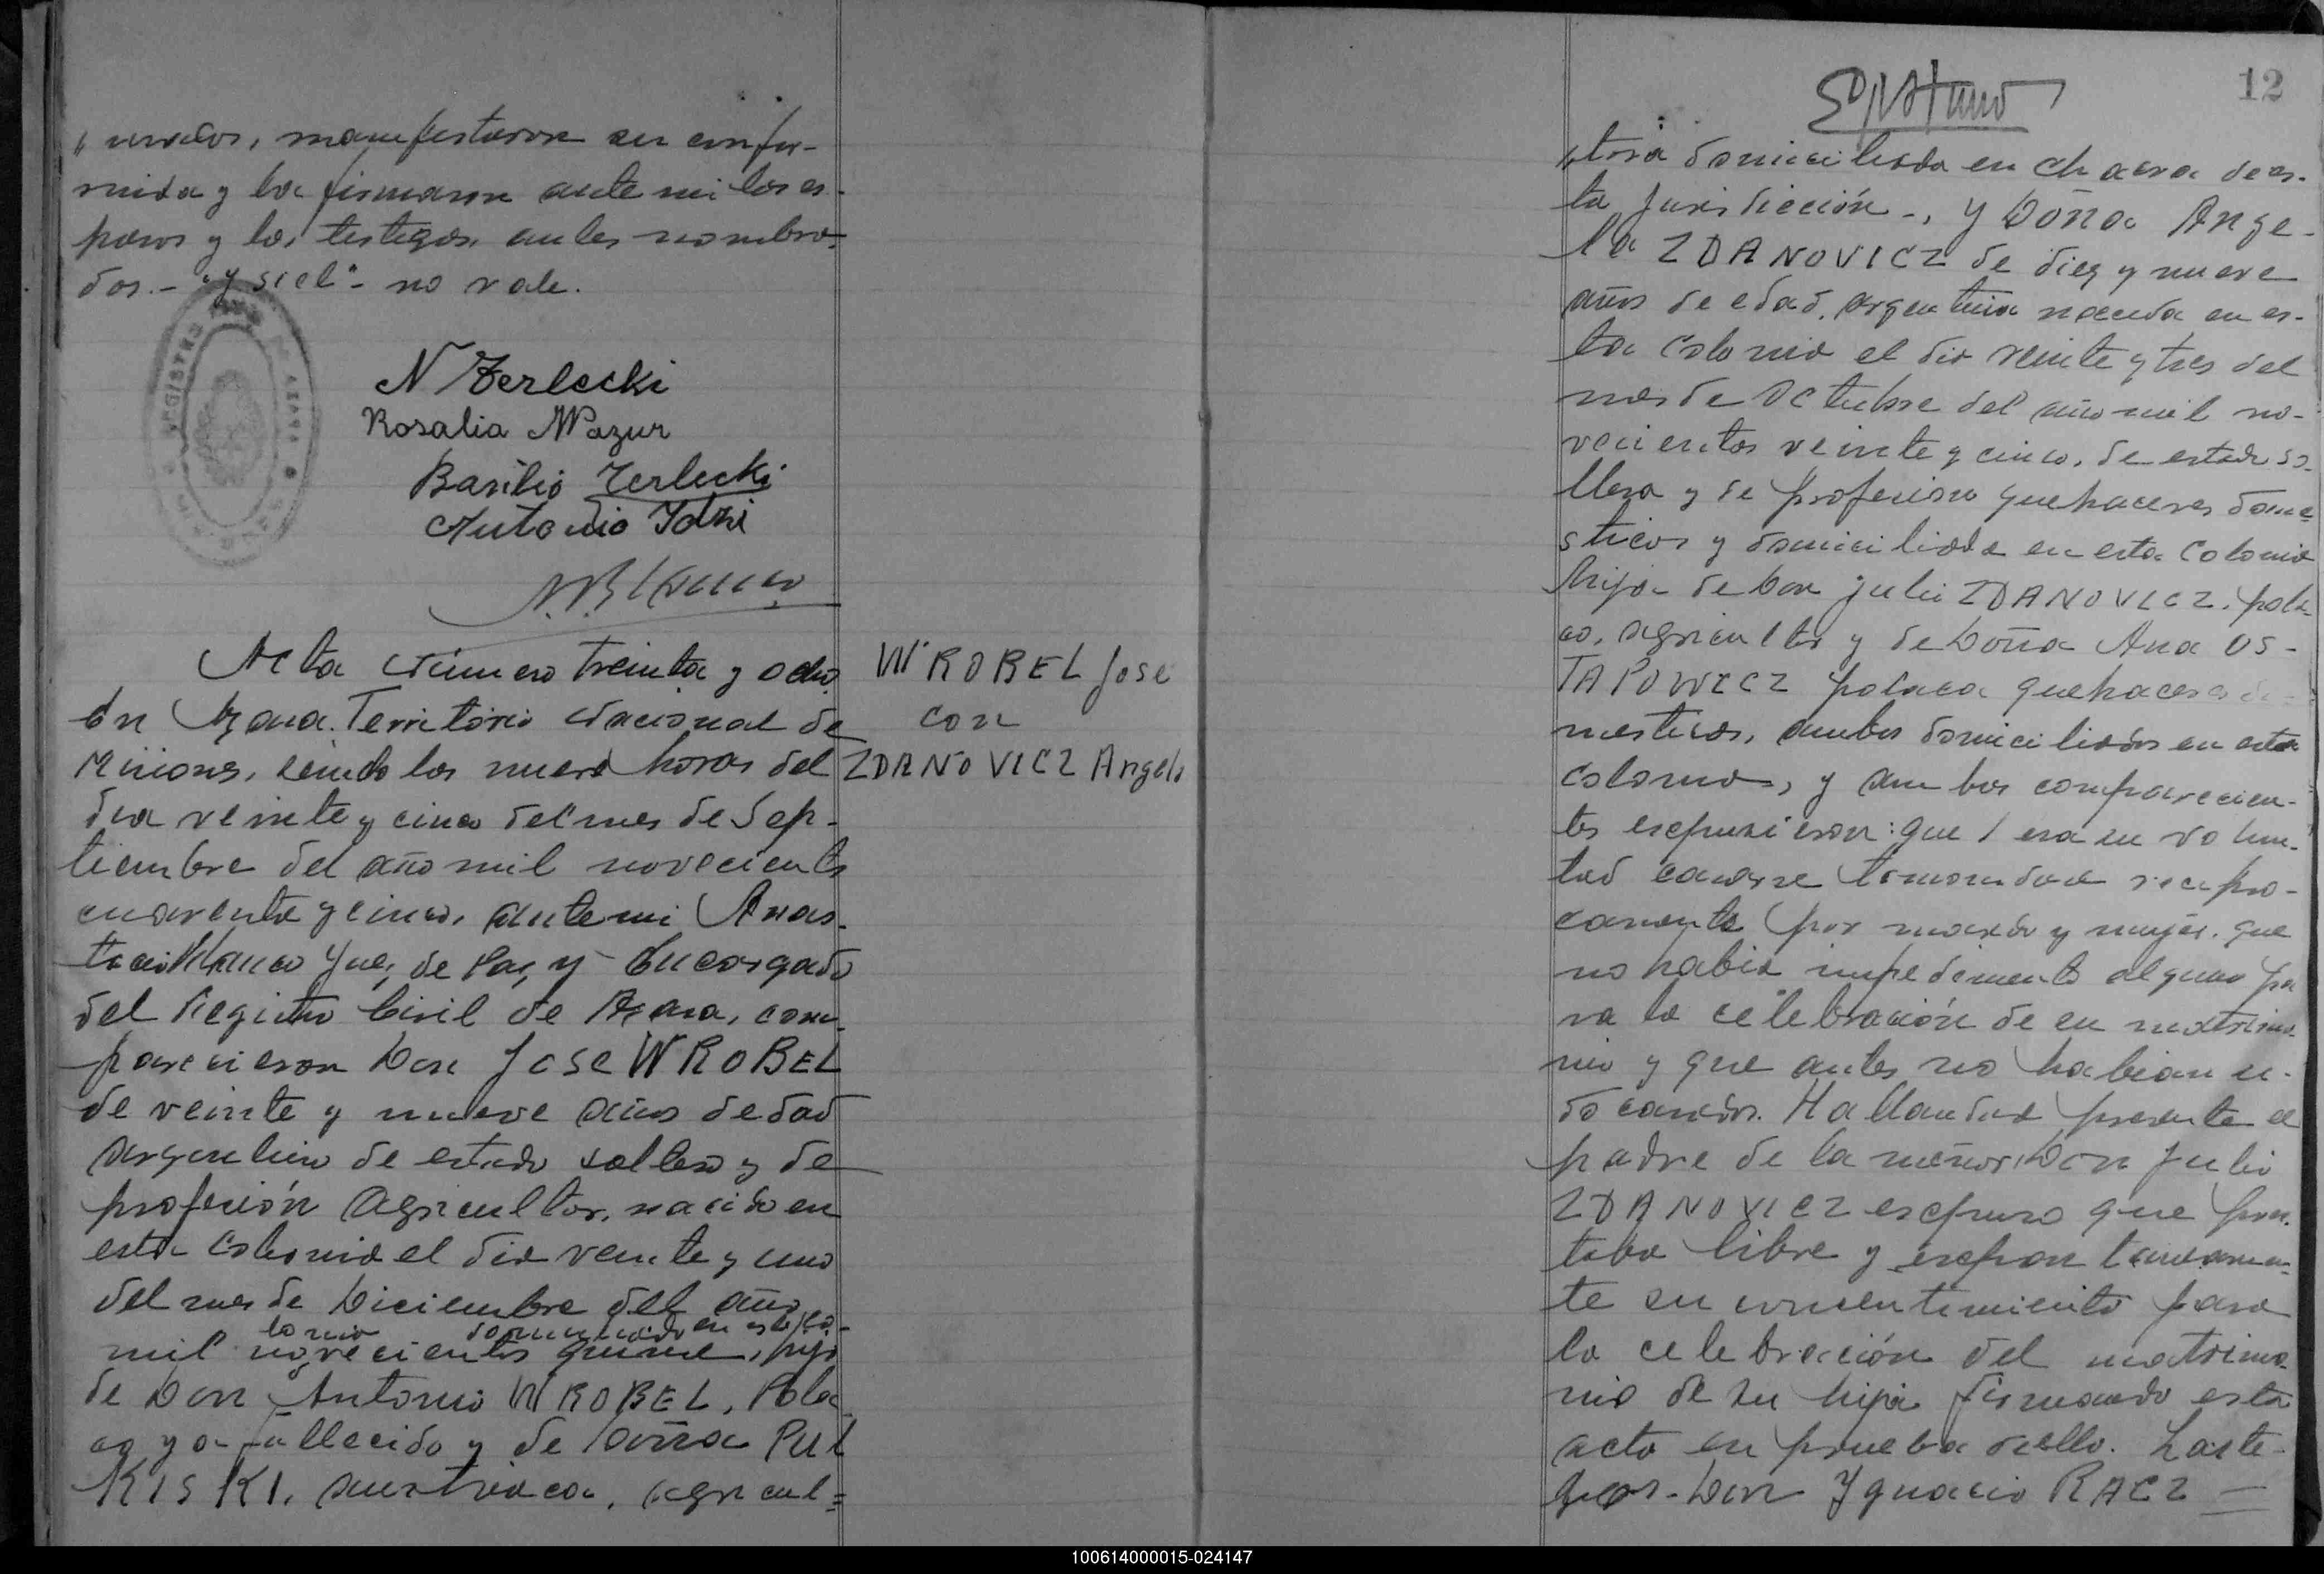 " nuados, manifestaron su confor-
mida y la firmaron ante mi los es-
posos y los testigos antes nombra-
dos.- "y siel"- no vale.
REGISTRO AZARA
N Zerlecki
Rosalia Mazur
Basilio Zerlecki
Antonio
Acta número treinta y ocho
En Azara. Territorio Nacional de
Misiones, siendo las nueve horas del
dia veinte y cinco del mes de Sep-
tiembre del año mil novecientos
cuarenta y cinco, ante mi Anas-
tacio Blanco Juez de Paz y Encargado
del Registro Civil de Azara, com-
parecieron Don Jose WROBEL
de veinte y nueve años dedad
argentino de estado soltero y de
profesión Agricultor, nacido en
esta Colonia el dia veinte y uno
del mes de Diciembre del año
lonia domiciliado en esta co-
mil novecientos quince, hijo
de Don Antonio WROBEL, Pola-
co ya fallecido y de Doña Pul
KISKI, austriaca, agricul=
WROBEL Jose
con
ZDANOVICZ Angela
12
"tora domiciliada en chacra de es-
ta Jurisdicción-, y Doña Ange-
la ZDANOVICZ de diez y nueve
años de edad, argentina nacida en es-
ta Colonia el dia veinte y tres del
mes de Octubre del año mil no-
vecientos veinte y cinco, de estado so-
ltera y de profesion quehaceres dome-
sticos y domiciliada en esta Colonia
hija de Don Julio ZDANOVICZ, pola-
co, agricultor y de Doña Ana OS-
TAPOWICZ polaca quehaceres do-
mesticos, ambos domiciliados en esta
Colonia, y ambos comparecien-
tes expusieron: que era su volun-
tad casarse tomandose recipro-
camente por marido y mujer, que
no habia impedimento alguno pa
ra la celebración de su matrimo-
nio y que antes no habian si-
do casados. Hallandose presente el
padre de la menor Don Julio
ZDANOVICZ expuso que pres-
taba libre y espontaneamen-
te su consentimiento para
la celebración del matrimo-
nio de su hija firmando esta
acta en prueba dello. Los te-
tigos- Don Ygnacio RACZ =
100614000015-024147